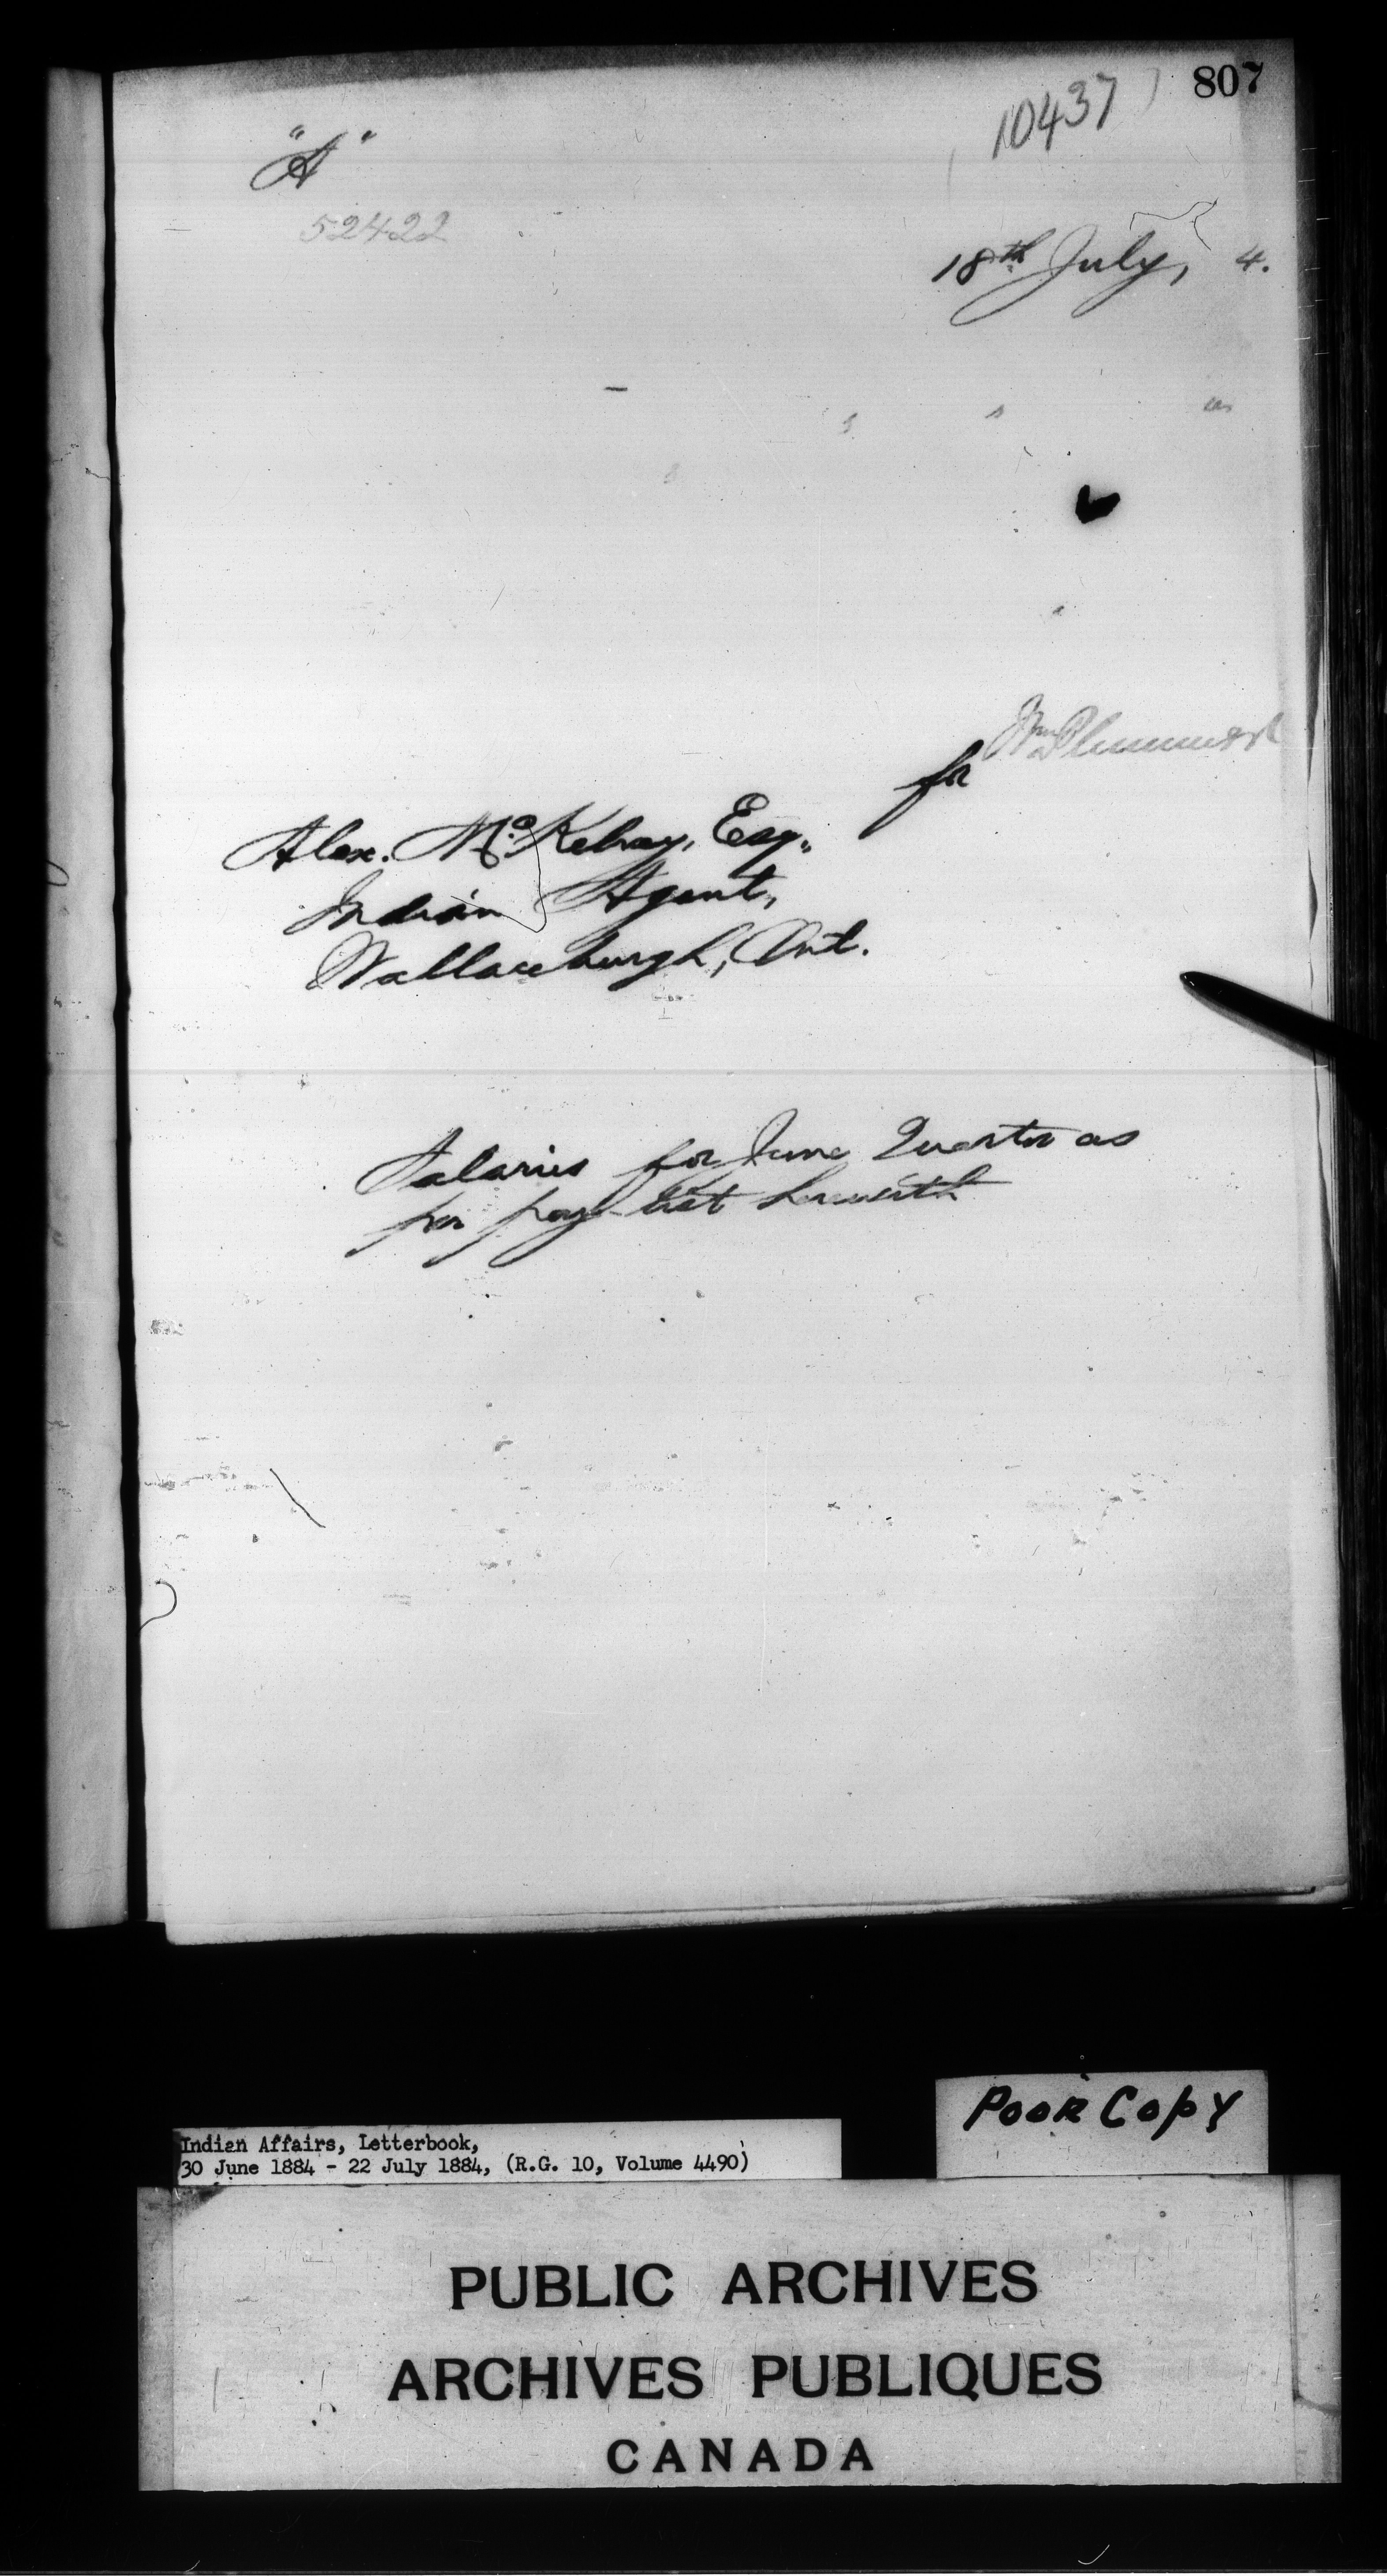 807
10437
"A"
52422
18th July, 4.
Wm Plummer
for
Alex. McKelvey, Esq.,
Indian Agent,
Wallaceburgh, Ont.
Salaries for June Quarter as
per pay-list herewith
Poor Copy
Indian Affairs, Letterbook,
30 June 1884 - 22 July 1884, (R.G. 10, Volume 4490)
PUBLIC ARCHIVES
ARCHIVES PUBLIQUES
CANADA